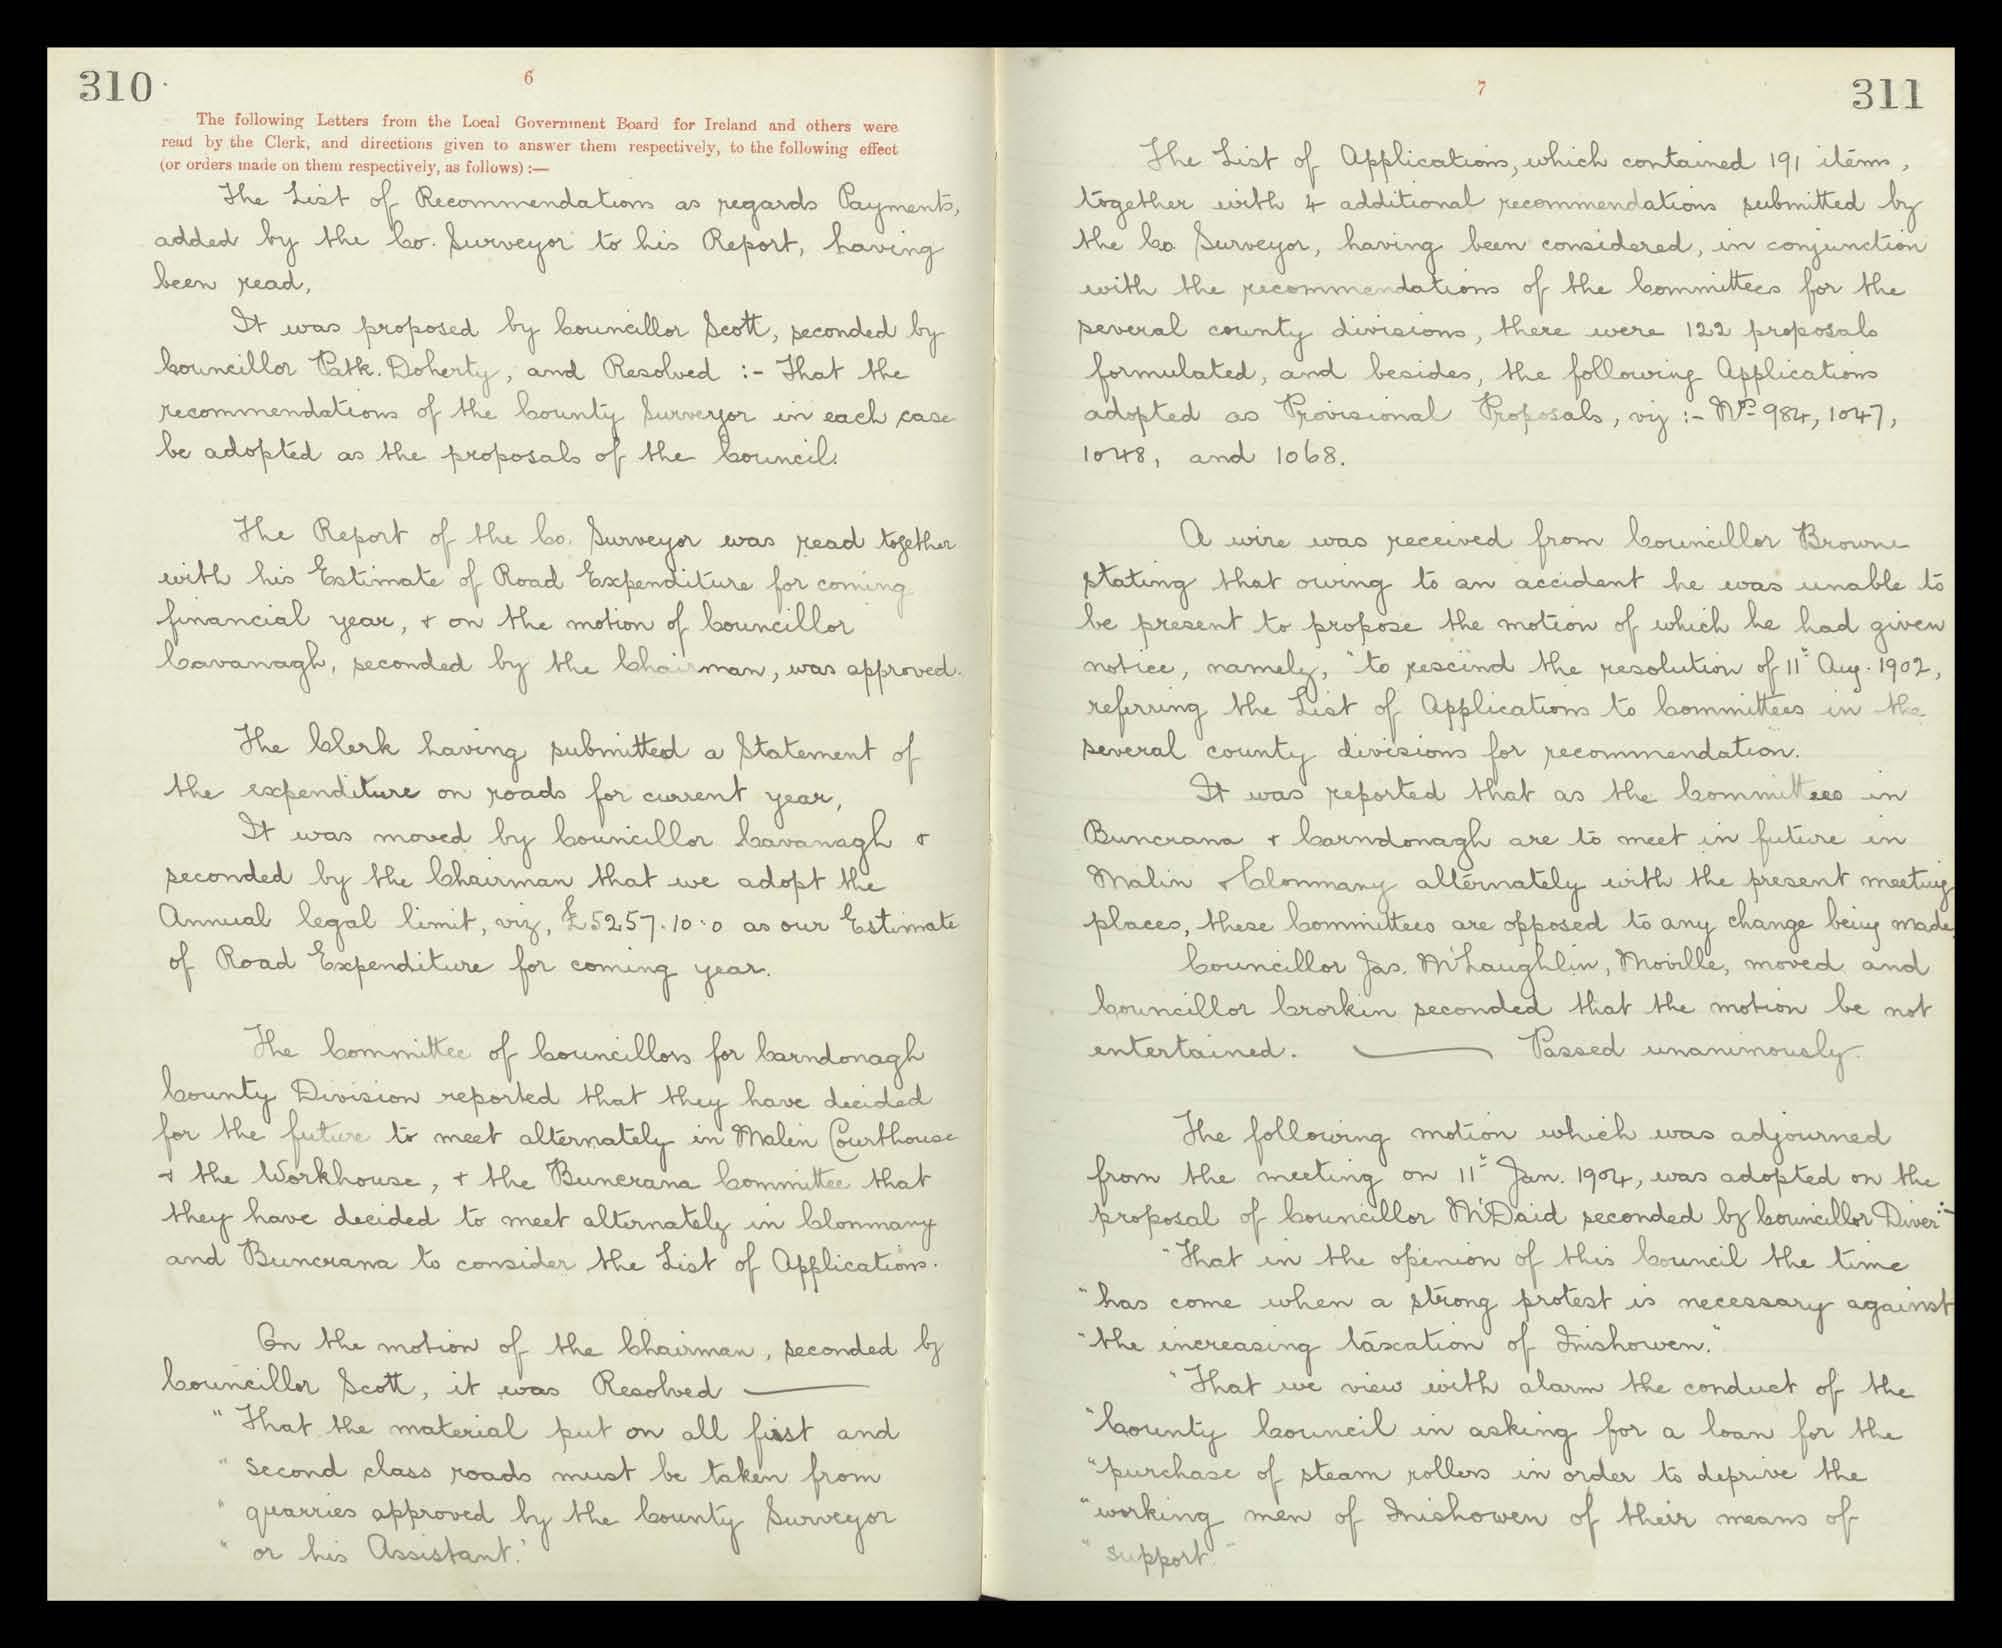 310
6
The following Letters from the Local Government Board for Ireland and others were
read by the Clerk, and directions given to answer them respectively, to the following effect
(or orders made on them respectively, as follows) :—
The List of Recommendations as regards Payments,
added by the Co. Surveyor to his Report, having
been read,
It was proposed by Councillor Scott, seconded by
Councillor Patk. Doherty, and Resolved :- That the
recommendations of the County Surveyor in each case
be adopted as the proposals of the Council.
The Report of the Co. Surveyor was read together
with his Estimate of Road Expenditure for coming
financial year, & on the motion of Councillor
Cavanagh, seconded by the Chairman, was approved.
The Clerk having submitted a Statement of
the expenditure on roads for current year,
It was moved by Councillor Cavanagh &
seconded by the Chairman that we adopt the
Annual legal limit, viz, £5257.10:0 as our Estimate
of Road Expenditure for coming year.
The Committee of Councillors for Carndonagh
County Division reported that they have decided
for the future to meet alternately in Malin Courthouse
& the Workhouse, & the Buncrana Committee that
they have decided to meet alternately in Clonmany
and Buncrana to consider the List of Applications.
On the motion of the Chairman, seconded by
Councillor Scott, it was Resolved ———
" That the material put on all first and
" second class roads must be taken from
" quarries approved by the County Surveyor
" or his Assistant."
7
311
The List of Applications, which contained 191 items,
together with 4 additional recommendations submitted by
the Co. Surveyor, having been considered, in conjunction
with the recommendations of the Committees for the
several county divisions, there were 122 proposals
formulated, and besides, the following Applications
adopted as Provisional Proposals, viz :- Nos 984, 1047,
1048, and 1068.
A wire was received from Councillor Browne
stating that owing to an accident he was unable to
be present to propose the motion of which he had given
notice, namely, "to rescind the resolution of 11t Aug. 1902,
referring the List of Applications to Committees in the
several county divisions for recommendation."
It was reported that as the Committees in
Buncrana & Carndonagh are to meet in future in
Malin & Clonmany alternately with the present meeting
places, these Committees are opposed to any change being made.
Councillor Jas. McLaughlin, Moville, moved and
Councillor Crorkin seconded that the motion be not
entertained. ——— Passed unanimously.
The following motion which was adjourned
from the meeting on 11t Jan. 1904, was adopted on the
proposal of Councillor McDaid seconded by Councillor Diver :-
"That in the opinion of this Council the time
"has come when a strong protest is necessary against
"the increasing taxation of Inishowen."
"That we view with alarm the conduct of the
"County Council in asking for a loan for the
"purchase of steam rollers in order to deprive the
"working men of Inishowen of their means of
"support."